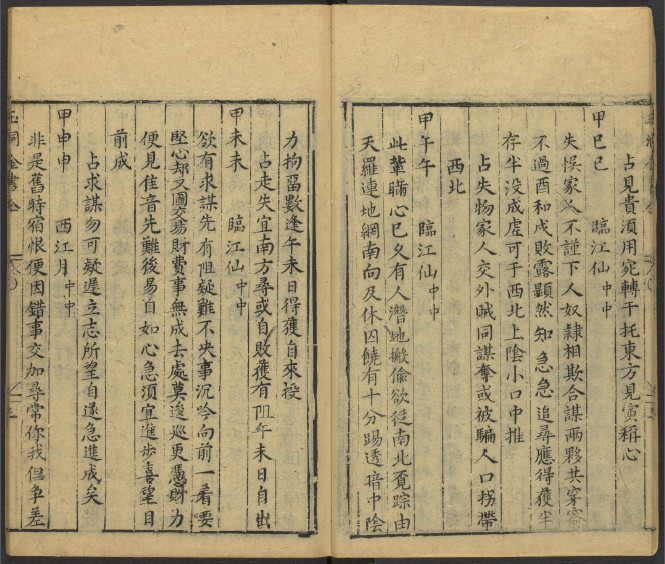 占見貴須用宛轉干托東方見寅稱心
甲巳巳　臨江仙中中
失悞家人不謹下人奴隸相欺合謀兩夥共穿窬
不過酉和戌敗露顯然知急急追尋應得獲半
存半没成虗可于西北上陰小口中推
占失物家人交外賊同謀奪或被騙人口拐帶
西北
甲午午　臨江仙中中
此輩瞞心已久有人潛地搬偷欲從南北覔踪由
天羅連地網南向及休囚饒有十分踢透暗中陰
力拘留數逢午未日得獲自來投
占走失宜南方尋或自敗獲有阻午未日自出
甲未未　臨江仙中中
欲有求謀先有阻疑難不决事沉吟向前一看要
堅心却又圖交易財費事無成去處莫逡巡更憑財力
便見佳音先難後易自如心急須宜進步喜望目
前成
占求謀勿可疑遲立志所望自遂急進成矣
甲申申　西江月中中
非是舊時宿恨便因錯事交加尋常你我但争差